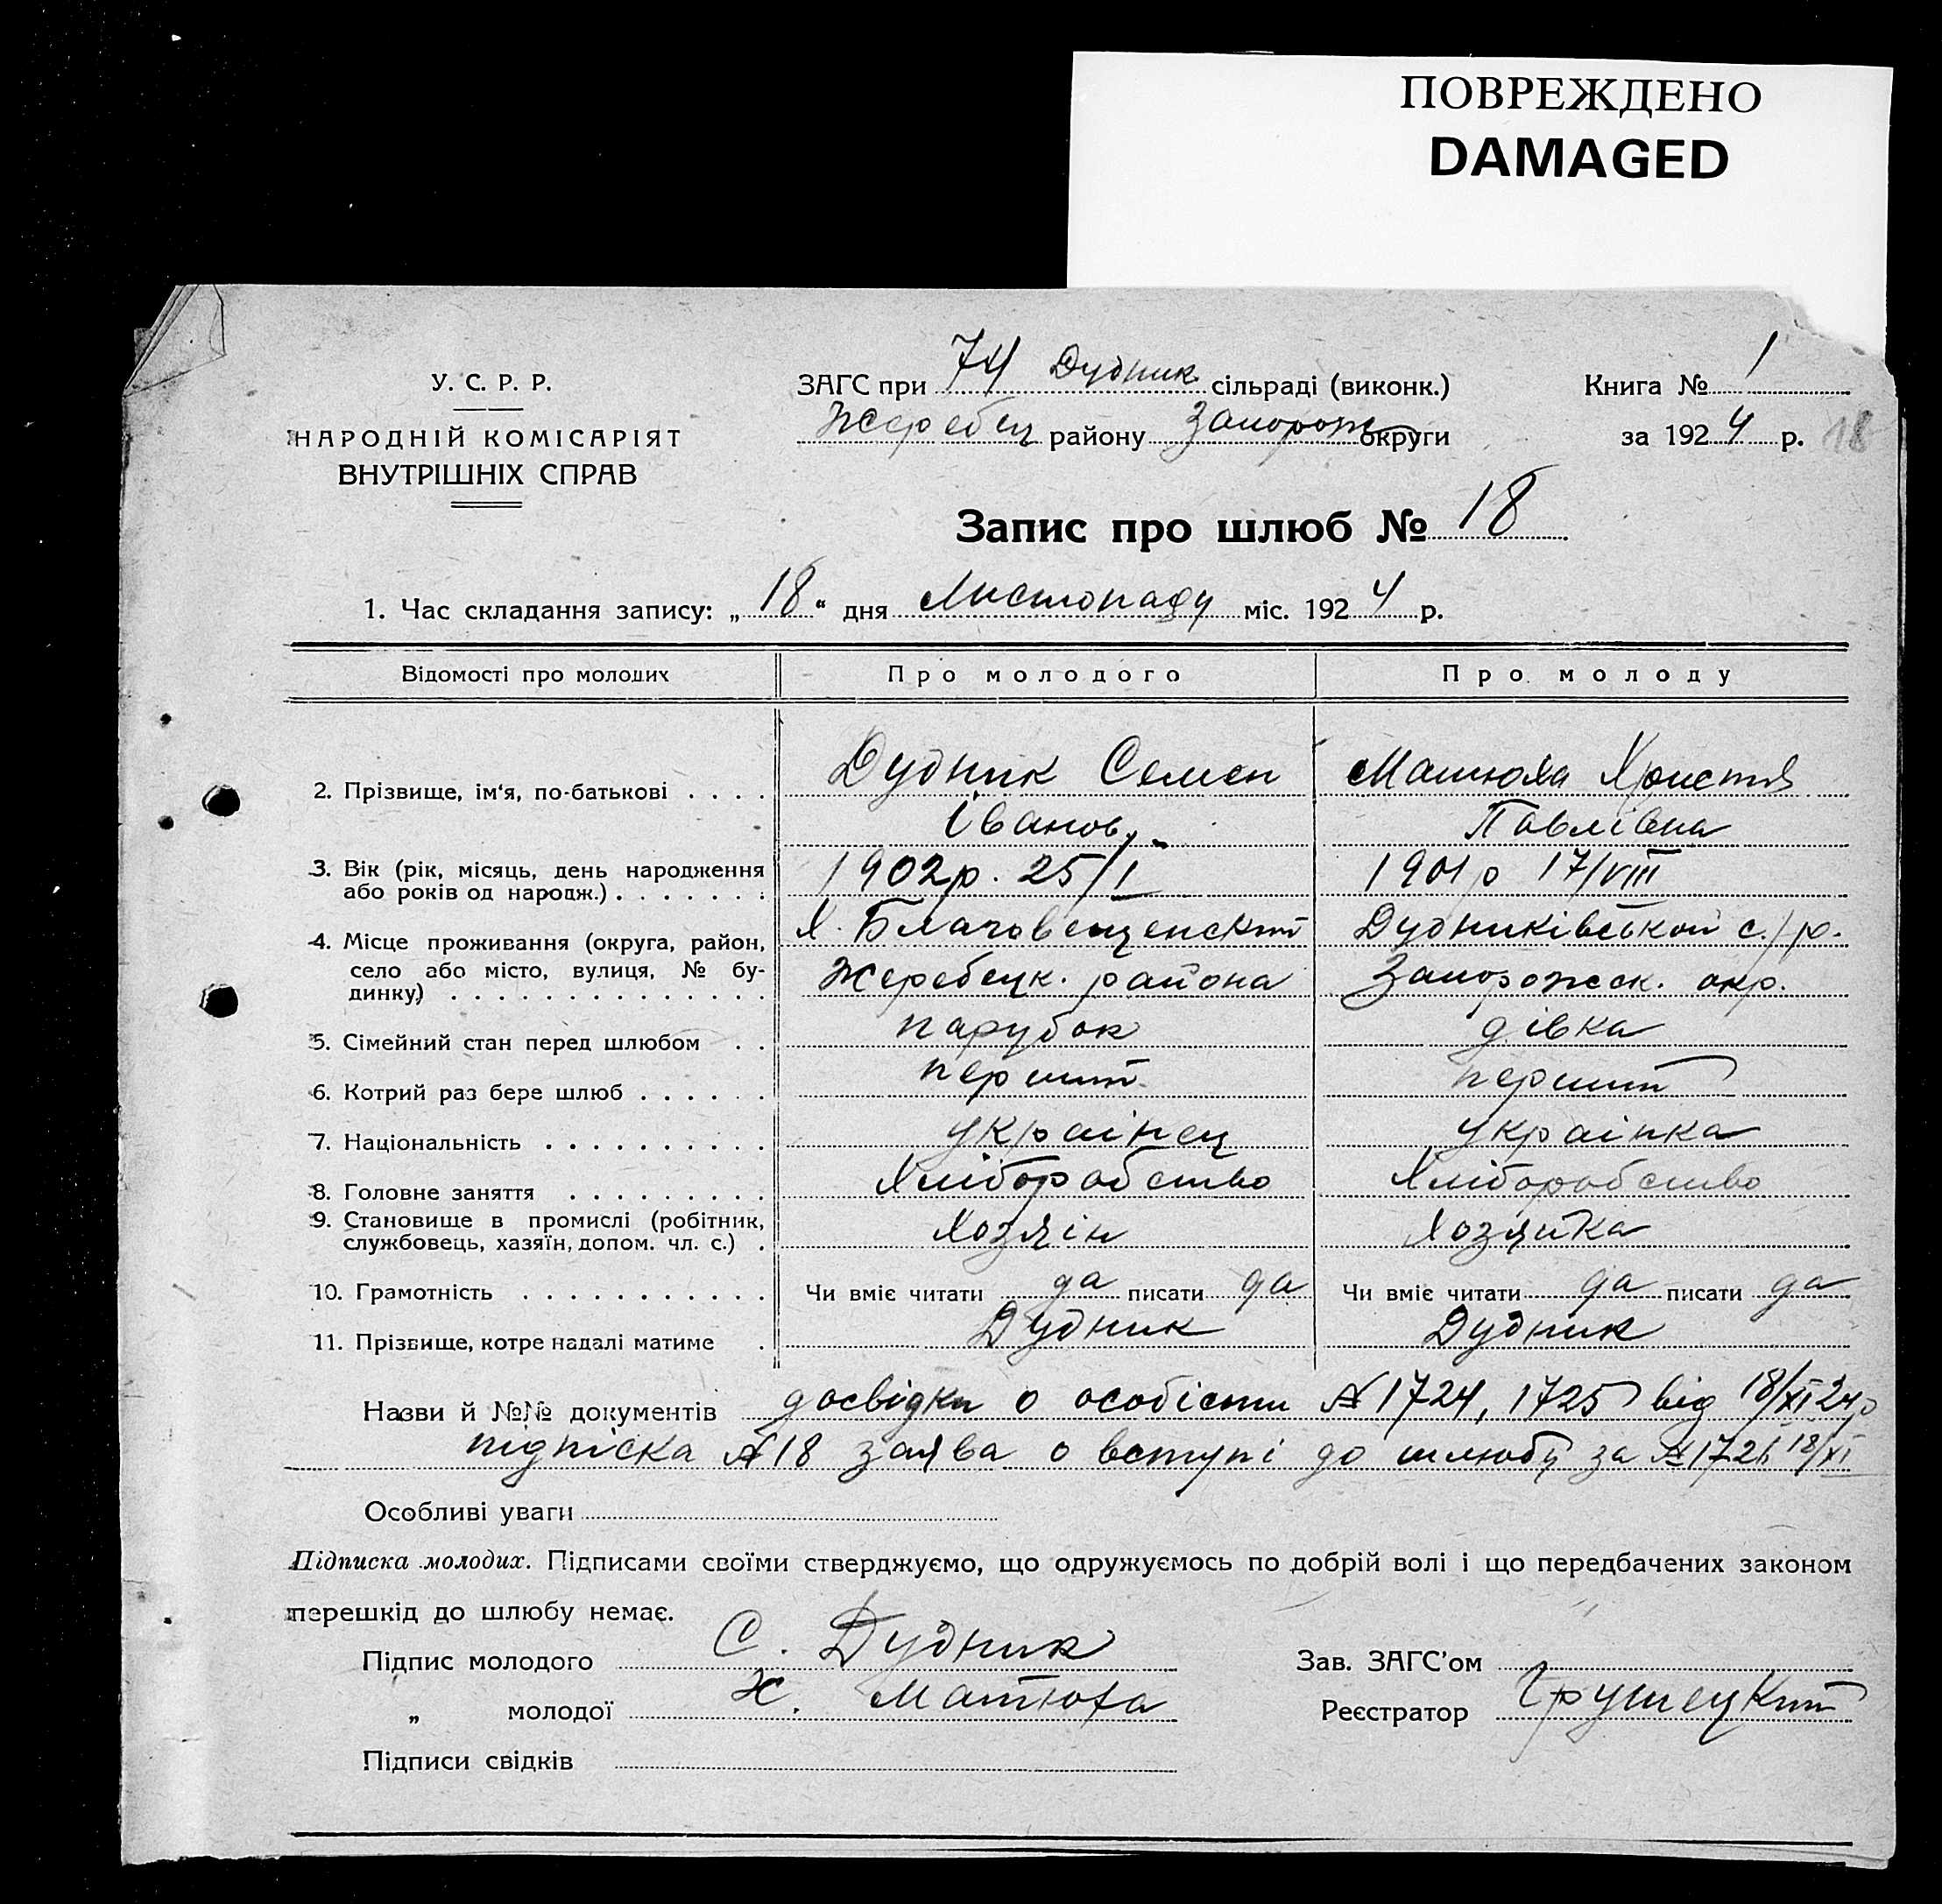 ПОВРЕЖДЕНО
DAMAGED
У. С. Р. Р.
НАРОДНІЙ КОМІСАРІЯТ
ВНУТРІШНІХ СПРАВ
ЗАГС при 74 Дудник сільраді (виконк.)
Жеребец району Запорож округи
Книга № 1
за 1924 р. 18
Запис про шлюб № 18
1. Час складання запису: „18“ дня Листопаду міс. 1924 р.
Відомості про молодих Про молодого Про молоду
2. Прізвище, ім'я, по-батькові . . . . Дудник Семен Матюха Христя
Іванов. Павлівна
3. Вік (рік, місяць, день народження або років од народж.) . . . . . . . 1902р. 25/I 1901р 17/VIII
4. Місце проживання (округа, район, Х. Благовещенский Дудниківськой с./р.
село або місто, вулиця, № будинку) . . . . . . . . . . . . . . Жеребецк. района Запорожск. окр.
5. Сімейний стан перед шлюбом . . парубок дівка
6. Котрий раз бере шлюб . . . . . . перший перший
7. Національність . . . . . . . . . . українец українка
8. Головне заняття . . . . . . . . . Хліборобство Хліборобство
9. Становище в промислі (робітник, службовець, хазяїн, допом. чл. с.) . Хозяін Хозяйка
10. Грамотність . . . . . . . . . . . Чи вміє читати да писати да Чи вміє читати да писати да
11. Прізвище, котре надалі матиме . Дудник Дудник
Назви й №№ документів досвідки о особісти №1724, 1725 від 18/XI 24р
підпіска №18 заява о вступі до шлюбу за 18/XI
Особливі уваги
Підписка молодих. Підписами своїми стверджуємо, що одружуємось по добрій волі і що передбачених законом
перешкід до шлюбу немає.
Підпис молодого С. Дудник Зав. ЗАГС'ом
„ молодої Х. Матюха Реєстратор Грушецкий
Підписи свідків